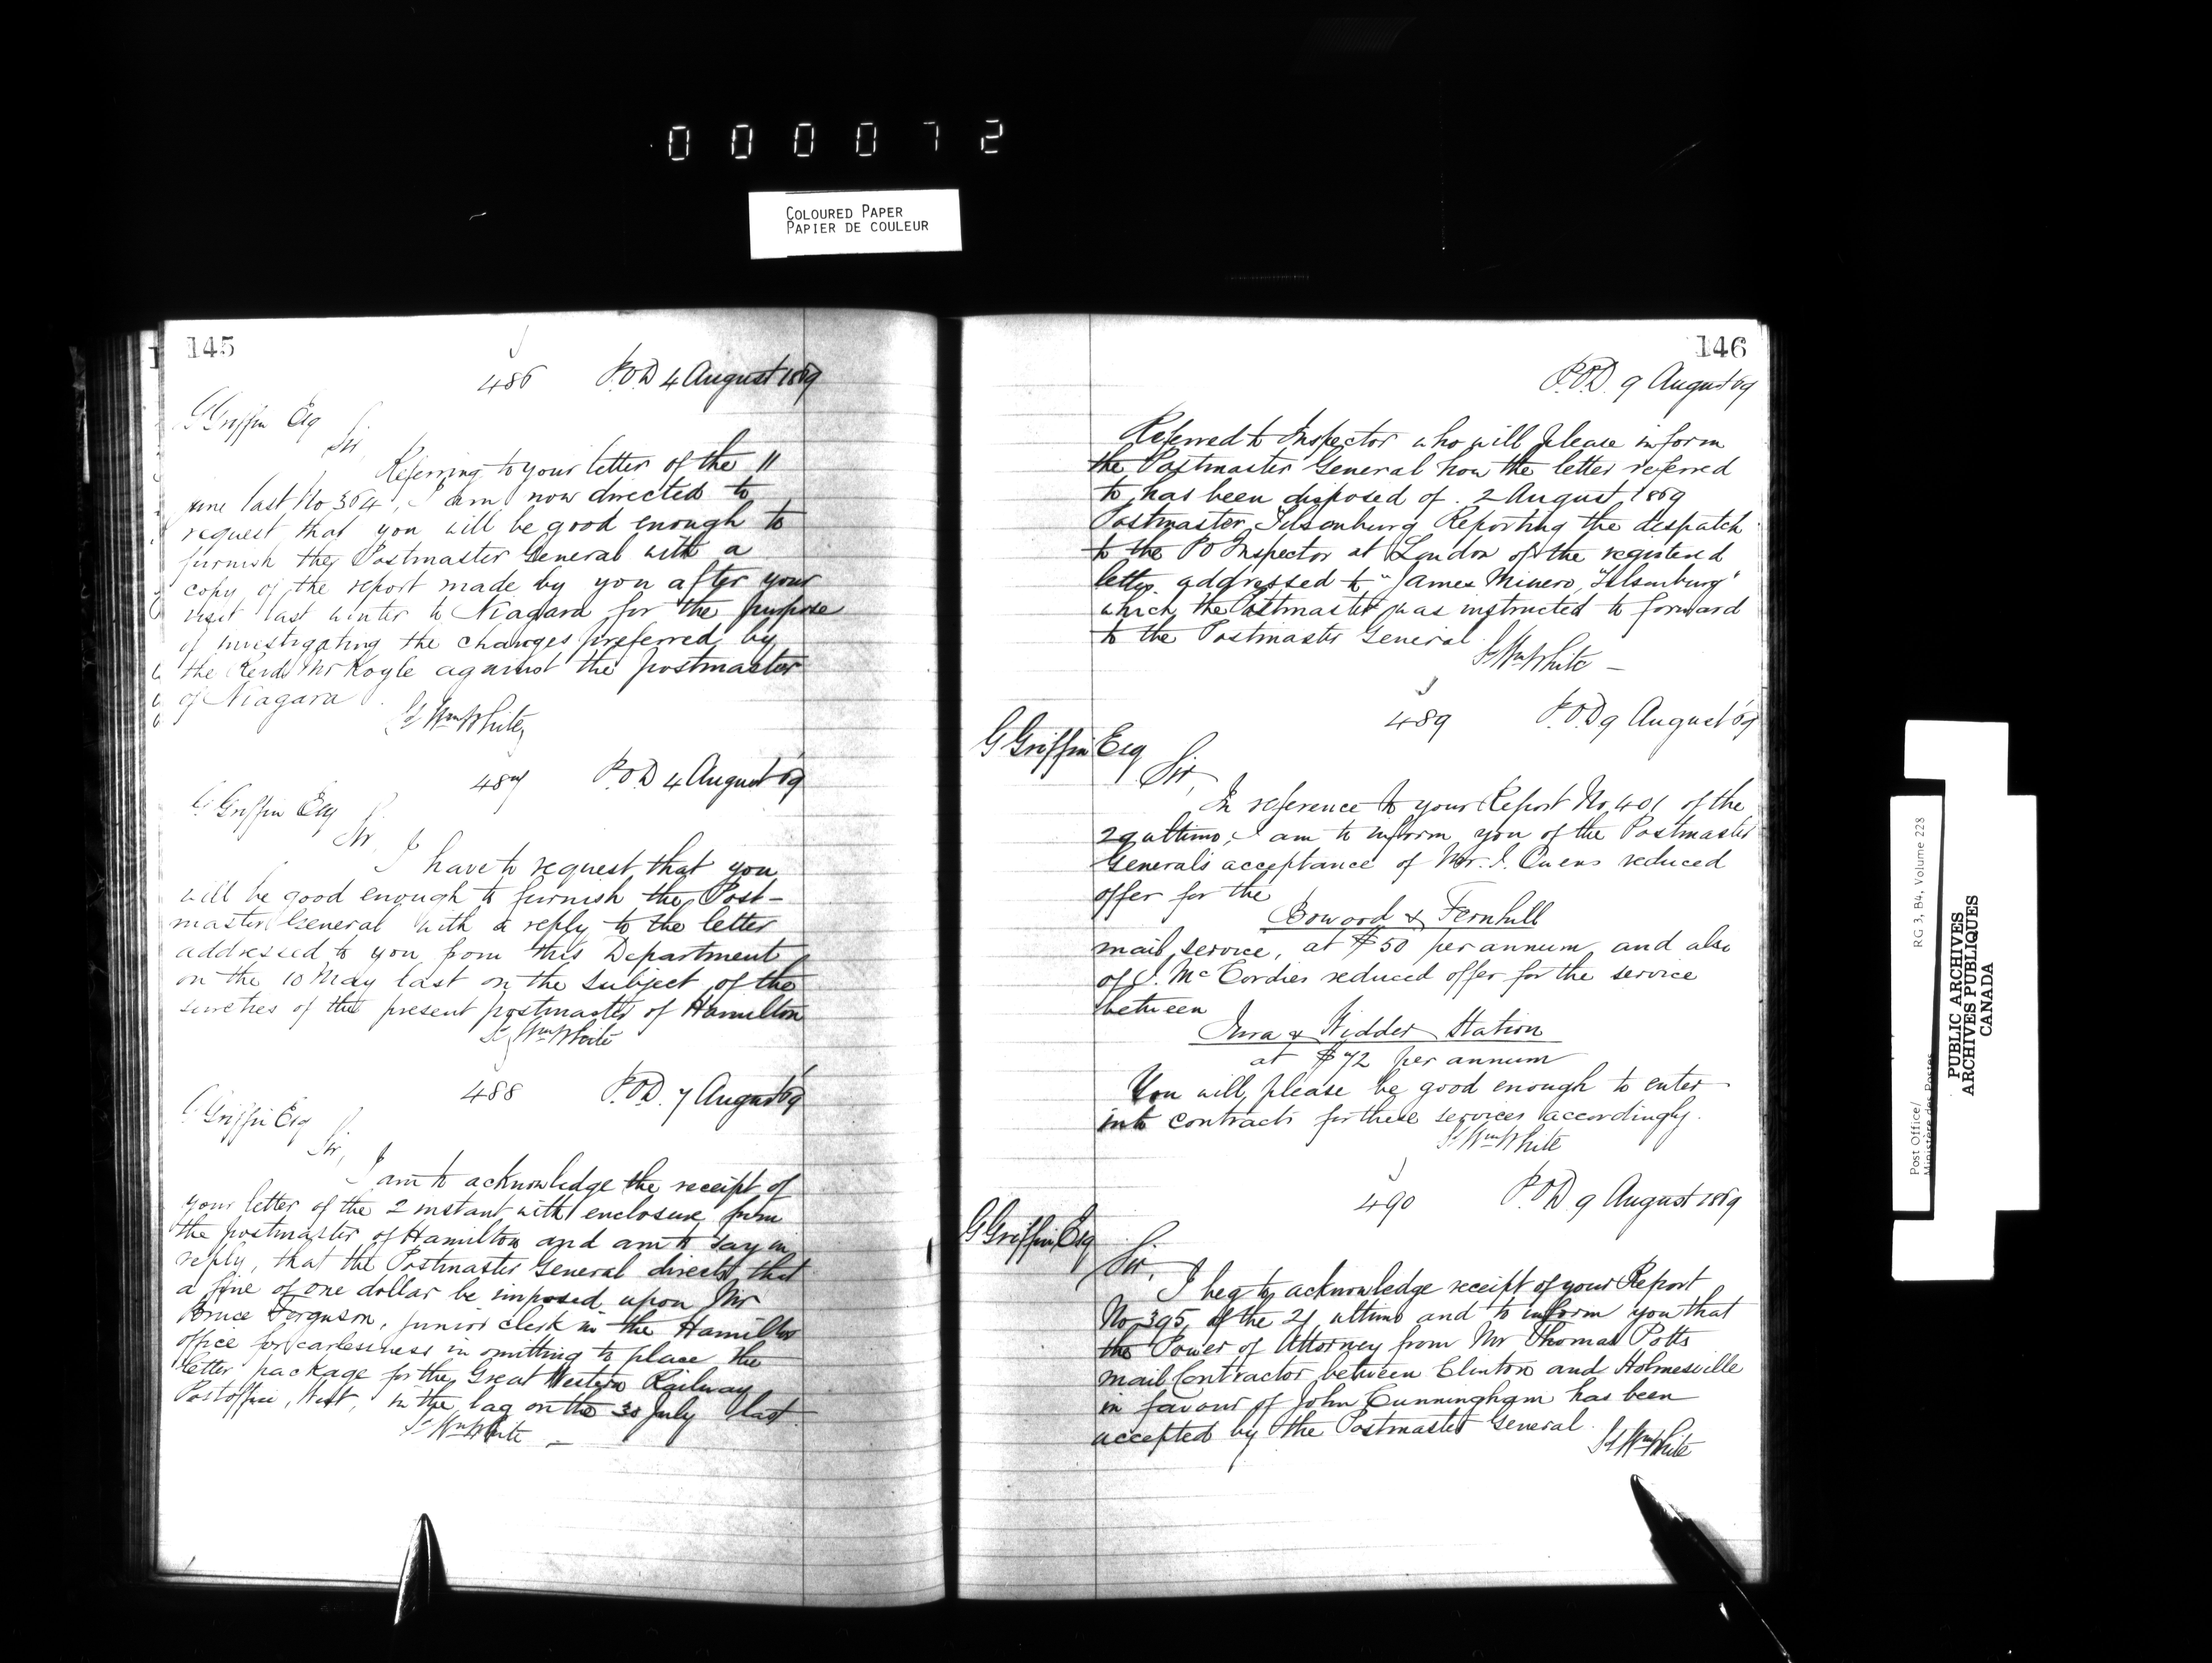 000072
COLOURED PAPER
PAPIER DE COULEUR
145
486 P.O.D 4 August 1869
G Griffin Esq
Sir,
Referring to your letter of the 11
June last No 364, I am now directed to
request that you will be good enough to
furnish the Postmaster General with a
copy of the report made by you after your
visit last winter to Niagara for the purpose
of investigating the charges preferred by
the Revd Mr Kogle against the postmaster
of Niagara.
Sd Wm White
487 P.O.D 4 August 69
G Griffin Esq
Sir,
I have to request that you
will be good enough to furnish the Post-
master General with a reply to the letter
addressed to you from this Department
on the 10 May last on the subject of the
sureties of the present postmaster of Hamilton
Sd Wm White
488 P.O.D. 7 August 69
G Griffin Esq
Sir,
I am to acknowledge the receipt of
your letter of the 2 instant with enclosure from
the postmaster of Hamilton and am to say in
reply, that the Postmaster General directs that
a fine of one dollar be imposed upon Mr
Bruce Ferguson, junior clerk in the Hamilton
office for carlessness in omitting to place the
letter package for the Great Western Railway
Postoffice, West, in the bag on the 30 July last.
Sd Wm White
146
P.O.D. 9 August 69
Referred to Inspector who will please inform
the Postmaster General how the letter referred
to has been disposed of. 2 August 1869
Postmaster Tilsonburg Reporting the despatch
to the PO Inspector at London of the registered
letter addressed to "James Minero, Tilsonburg"
which the Postmaster was instructed to forward
to the Postmaster General
Sd Wm White
489 P.O.D 9 August 69
G Griffin Esq
Sir,
In reference to your Report No 401 of the
29 ultimo, I am to inform you of the Postmaster
Generals acceptance of Mr. J. Owens reduced
offer for the
Bowood & Fernhill
mail service, at $50 per annum and also
of J. McCordies reduced offer for the service
between
Jura & Widder Station
at $72 per annum
You will please be good enough to enter
into contracts for these services accordingly.
Sd Wm White
490 P.O.D 9 August 1869
G Griffin Esq
Sir,
I beg to acknowledge receipt of your Report
No 395 of the 21 ultimo and to inform you that
the Power of Attorney from Mr Thomas Potts
mail Contractor between Clinton and Holmesville
in favour of John Cunningham has been
accepted by the Postmaster General.
Sd Wm White
Post Office/
Ministère des Postes
RG 3, B4, Volume 228
PUBLIC ARCHIVES
ARCHIVES PUBLIQUES
CANADA